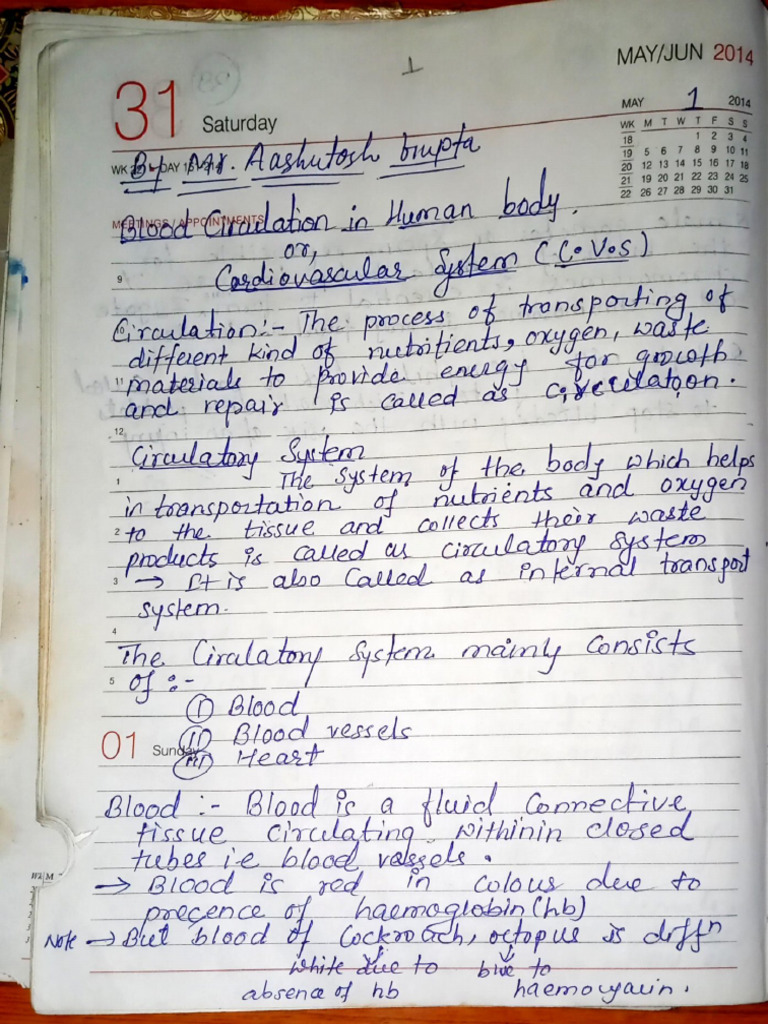 1
MAY/JUN 2014
31 Saturday
MAY 1 2014
WK M T W T F S S
18 1 2 3 4
19 5 6 7 8 9 10 11
20 12 13 14 15 16 17 18
21 19 20 21 22 23 24 25
22 26 27 28 29 30 31
By Mr. Aashutosh Gupta
MEETINGS / APPOINTMENTS
Blood Circulation in Human body.
or,
9 Cardiovascular System (C.V.S)
Circulation:- The process of transporting of
different kind of nutritients, oxygen, waste
11 materials to provide energy for growth
and repair is called as circulation.
12
Circulatory System
1 The system of the body which helps
in transportation of nutrients and oxygen
2 to the tissue and collects their waste
products is called as circulatory system
3 → It is also Called as internal transport
system.
4
The Ciralatory System mainly Consists
5 of :-
(I) Blood
(II) Blood vessels
01 Sunday
(III) Heart
Blood :- Blood is a fluid Connective
tissue circulating withinin closed
tubes i.e blood vessels.
→ Blood is red in colous due to
precence of haemoglobin (hb)
Note → But blood of Cockroach, octopus is diffn
white due to blue to
absence of hb haemocyacin.